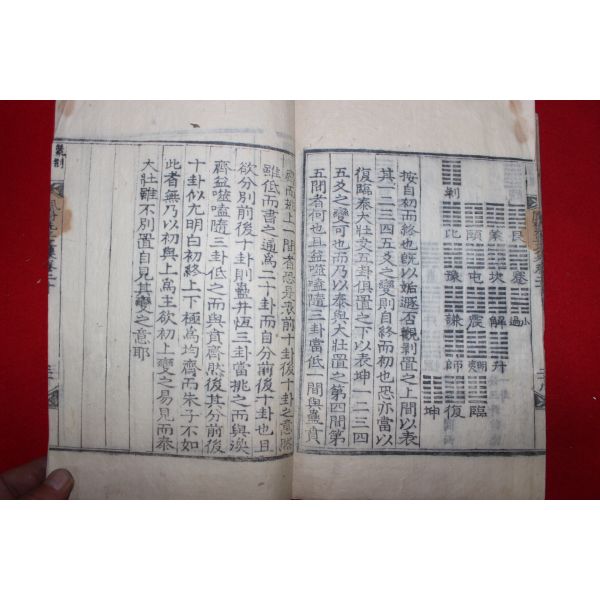 艮 蹇 小過
蒙 坎 解 升
頤 屯 震 明夷 臨
剝 比 豫 謙 師 復
坤
按自初而終也旣以姤遯否觀剝置之上間以表
其一二三四五爻之變則自終而初也恐亦當以
復臨泰大壯夬五卦俱置之下以表坤一二三四
五爻之變可也而乃以泰與大壯置之第四間第
五間者何也且益噬嗑隨三卦當低一間與蠱賁
而挑上一間者恐表前十卦後十卦之意然
雖低而書之通爲二十卦而自分前後十卦也且
欲分別前後十卦則蠱井恆三卦當挑之而與渙
齊益噬嗑隨三卦低之而與賁齊然後其分前後
十卦似尤明白初終上下極爲均齊而朱子不如
此者無乃以初與上爲主欲初一變之易見而泰
大壯雖不別置自見其變之意耶